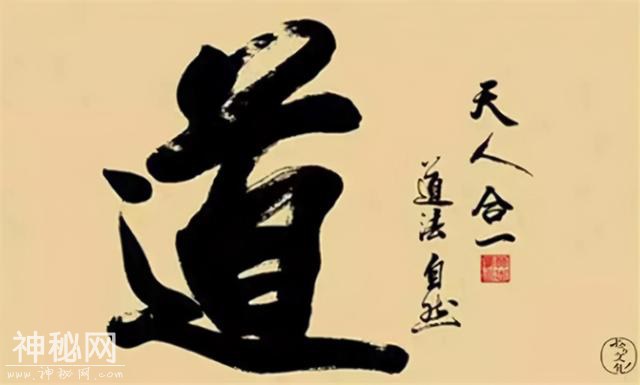 道
天人合一
道法自然
神秘网
www.shenmiwang.com